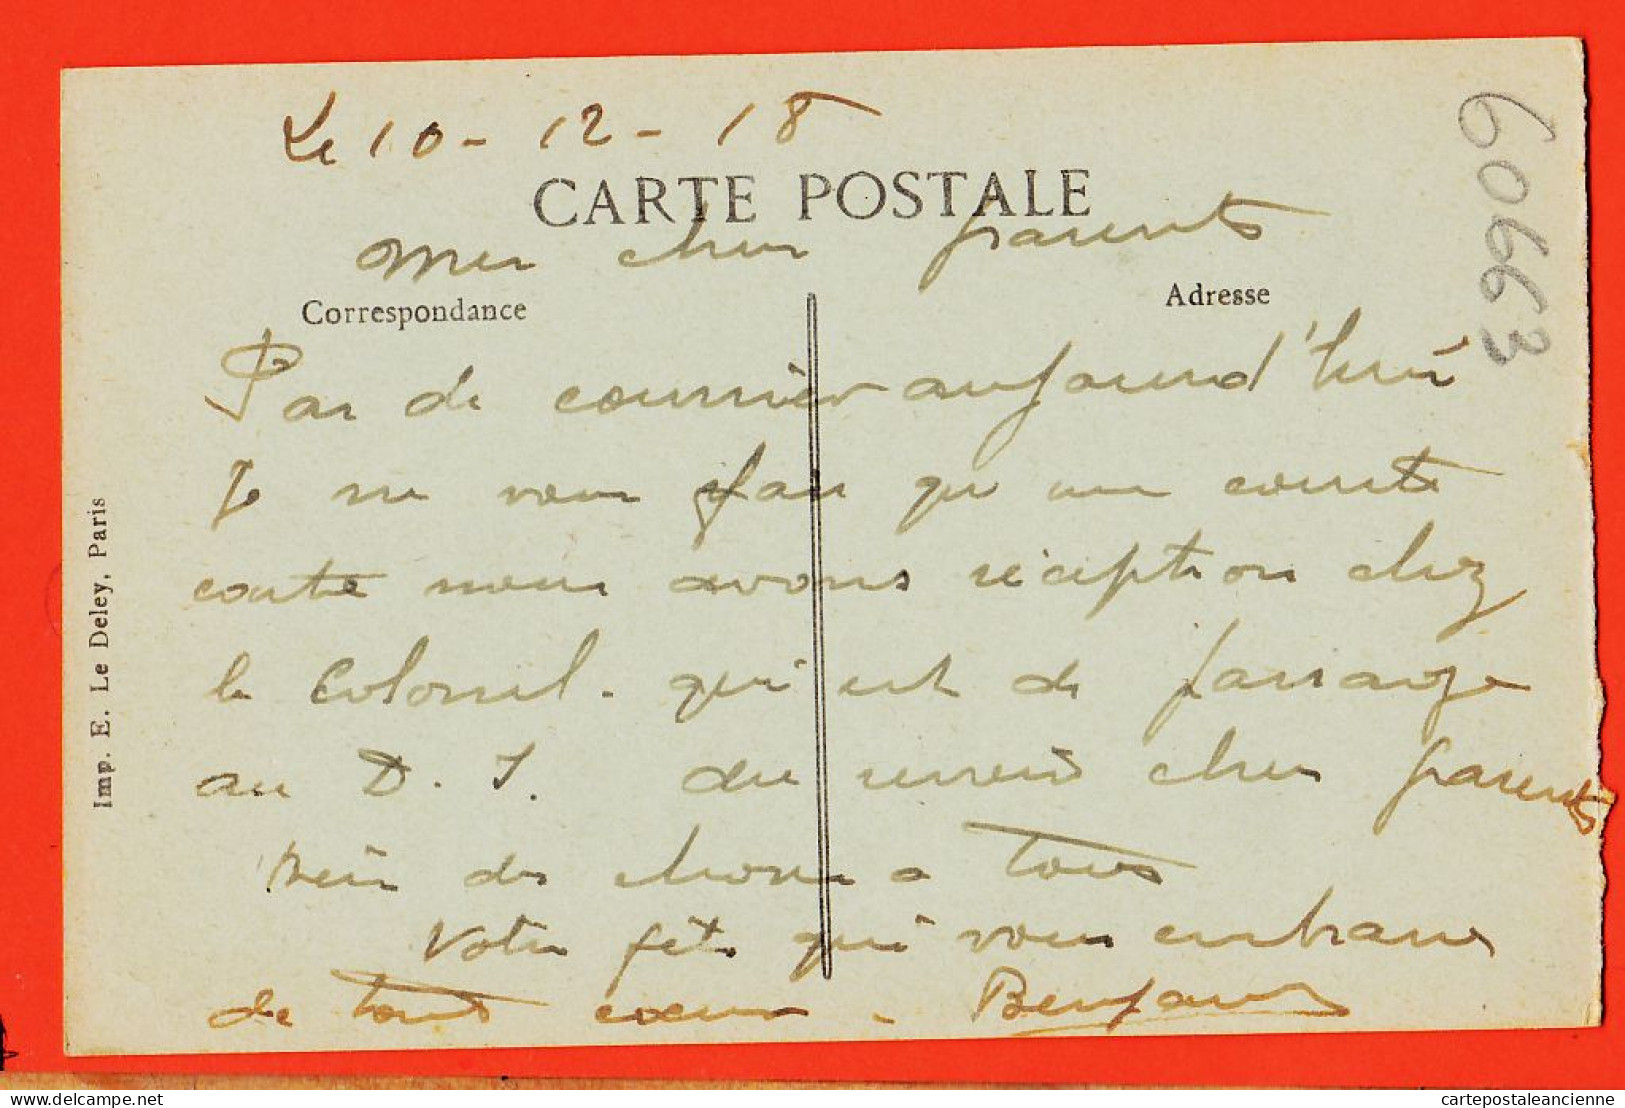 Le 10 - 12 - 18
CARTE POSTALE
Mes chers parents
Correspondance
Adresse
60663
Pas de courrier aujourd'hui
Je ne vous fais qu'une courte
carte nous avons réception chez
le Colonel. qui est de passage
au D. I. chers parents
bien des choses a tous
Votre fils qui vous embrasse
de tout cœur - Benjamin
Imp. E. Le Deley, Paris
delcampe.net
cartepostaleancienne